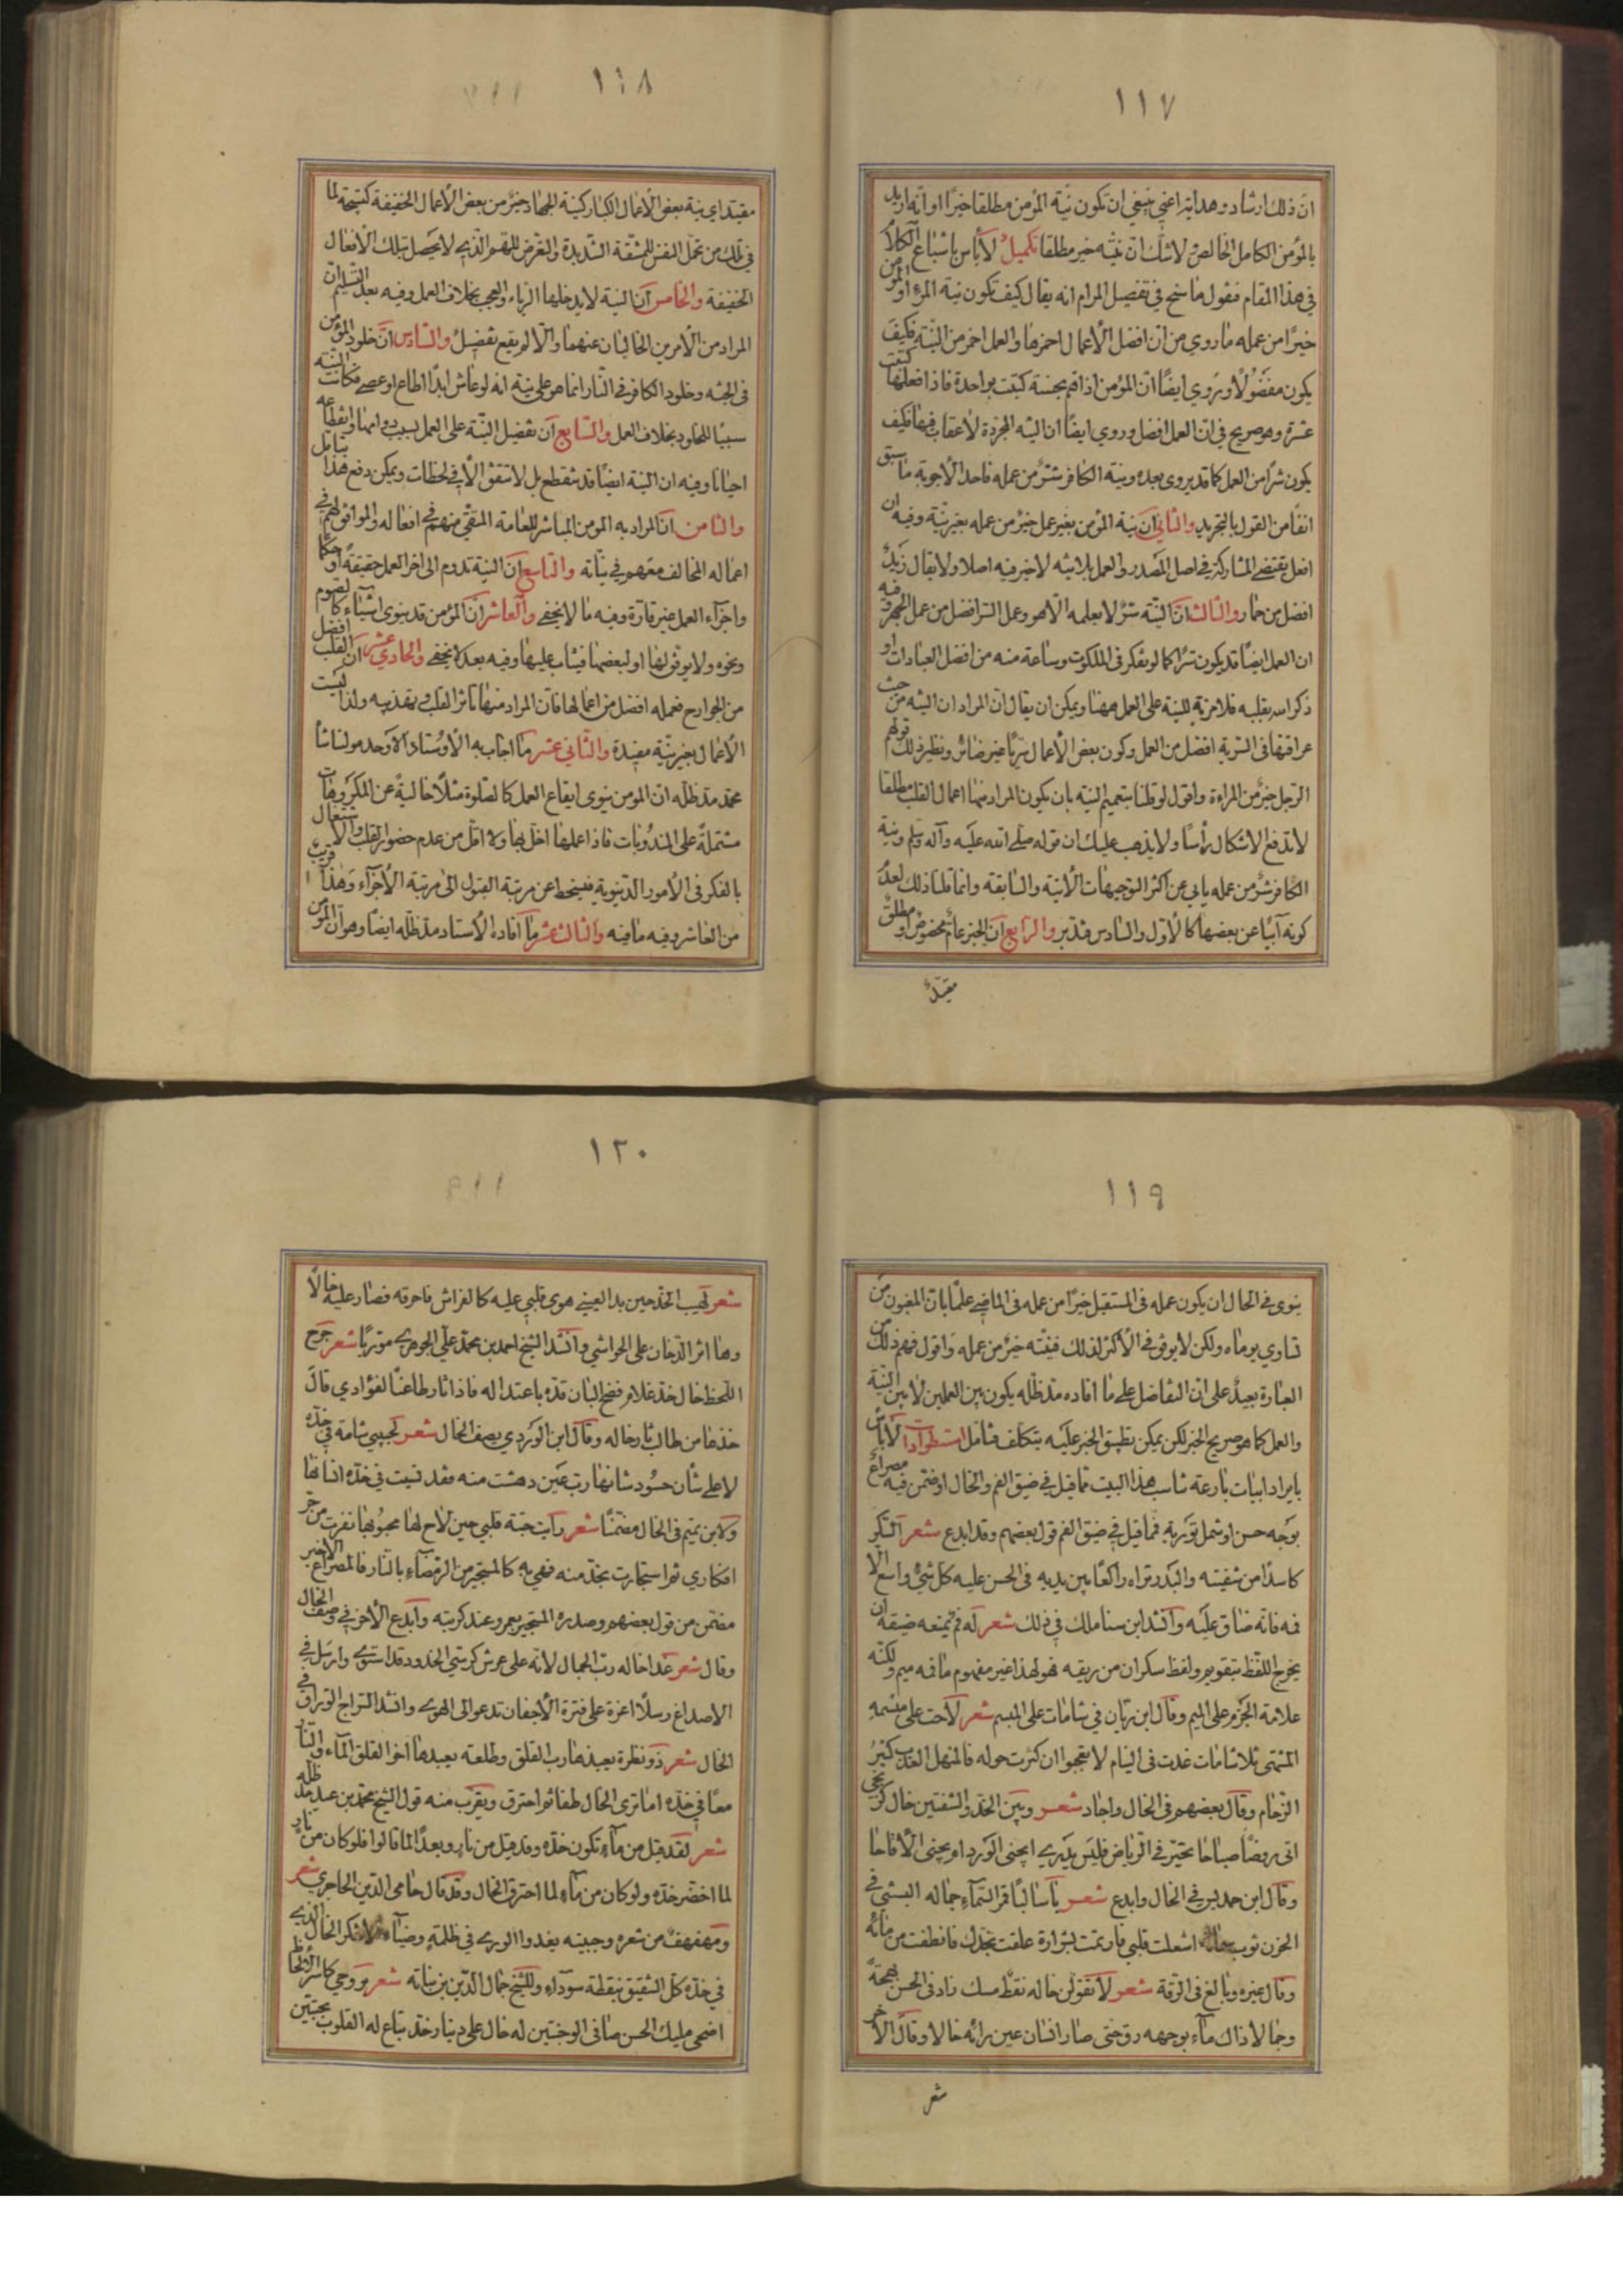 ١١٧
ان ذلك ارشاد وهداية اعني ينبغي ان تكون نية المؤمن مطلقا خيرًا او انه اريد
بالمؤمن الكامل الخالص لاشك ان نيته خير مطلقا تكميل لا بأس باشباع الكلام
في هذا المقام فنقول ما سنح في تفصيل المرام انه يقال كيف تكون نية المرء او المؤمن
خيرًا من عمله ما روي من ان افضل الأعمال احمزها والعمل احمز من النية فكيف
يكون مفضولًا ويروي ايضًا ان المؤمن اذا هم بحسنة كتبت بواحدة فاذا فعلها كتبت
عشرة وهو صريح في ان العمل افضل وروي ايضًا ان النية المجردة لا عقاب فيها فكيف
يكون شرًا من العمل كما قد يروى بعده ونية الكافر شرّ من عمله فاحد الأجوبة ما سبق
انفًا من القول بالتجريد والثاني ان نية المؤمن بغير عمل خير من عمله بغير نية وفيه ان
افعل يقتضي المشاركة في اصل المصدر والعمل بلا نية لا خير فيه اصلا ولا يقال زيد
افضل من حمار والثالث ان النية سرّ لا يعلمه الا هو وعمل السر افضل من عمل الجهر وفيه
ان العمل ايضًا قد يكون سرًا كما لو تفكر في الملكوت وساعة منه من افضل العبادات او
ذكر الله بقلبه فلا مزية للنية على العمل ههنا ويمكن ان يقال ان المراد ان النية من حيث
عراقتها في السرية افضل من العمل وكون بعض الأعمال سريًا غير ضائر ونظير ذلك قولهم
الرجل خير من المراءة واقول لو قلنا بتعميم النية بان يكون المراد منها اعمال القلب مطلقا
لاندفع الاشكال رأسًا ولا يذهب عليك ان قوله صلى الله عليه وآله وسلم ونية
الكافر شرّ من عمله يابي عن اكثر التوجيهات الآتية والسابقة وانما قلنا ذلك لعدم
كونه آبيًا عن بعضها كالأول والسادس فتدبر والرابع ان الخبر عام مخصوص او مطلق
مقيد
١١٨
مقيد اي نية بعض الأعمال الكبار كنية الجهاد خير من بعض الأعمال الخفيفة كتسبيحة لما
في تلك من تحمل النفس للمشقة الشديدة والتعرض للهم الذي لا يحصل بتلك الأفعال
الخفيفة والخامس ان النية لا يدخلها الرياء والعجب بخلاف العمل وفيه بعد التسليم ان
المراد من الأمرين الخاليان عنهما والّا لم يقع تفضيل والسادس ان خلود المؤمن
في الجنة وخلود الكافر في النار انما هو على نية انه لو عاش ابدًا اطاع او عصى فكانت النية
سببًا للخلود بخلاف العمل والسابع ان تفضيل النية على العمل بسبب دوامها وانقطاعه
احيانا وفيه ان النية ايضًا قد ينقطع بل لا تتفق الّا في لحظات ويمكن دفع هذا بتأمل
والثامن ان المراد به المومن المباشر للعامة المتقي منهم في افعاله والموافق لهم في
اعماله المخالف معهم في نياته والتاسع ان النية تدوم الى اخر العمل حقيقة او حكمًا
واجزاء العمل غير قارة وفيه ما لا يخفى والعاشر ان المؤمن قد ينوي اشياء كالصوم
ونحوه ولا يوفق لها او لبعضها فيثاب عليها وفيه بعد لا يخفى والحادي عشر ان القلب افضل
من الجوارح فعمله افضل من اعمالها فان المراد منها تاثر القلب وتهذيبه ولذا ليست
الأعمال بغير نية مفيدة والثاني عشر ما اجاب به الأوستاد الأوحد مولانا شا
محمد مد ظله ان المومن ينوي ايقاع العمل كالصلوة مثلًا خاليةً عن المكروهات
مشتملةً على المندوبات فاذا عملها اخل بها ولا اقل من عدم حضور القلب والاشتغال
بالفكر في الأمور الدنيوية فينحط عن مرتبة القبول الى مرتبة الأجزاء وهذا قريب
من العاشر وفيه ما فيه والثالث عشر ما افاده الأستاد مد ظله ايضًا وهو ان المؤمن
١١٩
ينوي في الحال ان يكون عمله في المستقبل خيرًا من عمله في الماضي علمًا بان المغبون من
تساوي يوماه ولكن لا يوفق في الأكثر لذلك فنيته خير من عمله واقول فهم ذلك من
العبارة بعيد على ان التفاضل على ما افاده مد ظله يكون بين العملين لا بين النية
والعمل كما هو صريح الخبر لكن يمكن تطبيق الخبر عليه بتكلف فتأمل استطراد لا باس
بايراد ابيات بارعة تناسب هذا البيت مما قيل في ضيق الفم والخال او ضمن فيه مصراع
بوجه حسن او شمل تورية فمما قيل في ضيق الفم قول بعضهم وقد ابدع شعر السكر
كاسدًا من شفتيه والبدر تراه راكعًا بين يديه في الحسن عليه كل شيء واسع الا
فمه فانه ضاق عليه وانشد ابن سنا ملك في ذلك شعر له فم يمنعه ضيقه ان
يخرج اللفظ بتقويم ولفظ سكران من ريقه فهو لهذا غير مفهوم ما فمه ميم ولكنه
علامة الجزم على الميم وقال ابن ريان في شامات على المبسم شعر لاحت على مبسمه
المشتهى ثلاث شامات غدت في التيام لا تعجبوا ان كثرت حوله فالمنهل العذب كثير
الزحام وقال بعضهم في الخال واجاد شعر وبين الخد والشفتين خال كزنجي
اتى روضًا صباحا تحير في الرياض فليس يدري ايجني الورد ام يجني الأقاحا
وقال ابن حمديس في الخال وابدع شعر يا سالبًا قمر السماء جماله البستني في
الحزن ثوب سمائه اشعلت قلبي فارتمت بشرارة علقت بخدك فانطفت من مائه
وقال غيره وبالغ في الرقة شعر لا تقولن خاله نقط مسك زاد في الحسن بهجةً
وجمالا ذاك ماء بوجهه رق حتى صار انسان عين رائه خالا وقال الأخر
شعر
١٢٠
شعر لهيب الخد حين بدا لعيني هوى قلبي عليه كالفراش فاحرقه فصار عليه خالًا
وها اثر الدخان على الحواشي وانشد الشيخ احمد بن محمد علي الجوهري موريًا شعر جرح
اللحظ خال خد غلام فضح البان قده باعتداله فاذا ثار طاعنًا لفؤادي قال
خذها من طالب ثار خاله وقال ابن الوردي يصف الخال شعر لحبيبي شامة في خده
لا على شان حسود شانها رب عين دهشت منه فقد نسيت في خده انسانها
ولابن تميم في الخال مضمنًا شعر رأيت حبة قلبي حين لاح لها محبوبها نفرت من حر
افكاري ثم استجارت بخد منه فهي به كالمستجير من الرمضاء بالنار فالمصراع الاخير
مضمن من قول بعضهم وصدره المستجير بعمرو عند كربته وابدع الأخر في وصف الخال
وقال شعر غدا خاله رب الجمال لأنه على عرش كرسي الخدود قد استوى وارسل في
الاصداغ رسلًا اعزة على فترة الأجفان تدعو الى الهوى وانشد السراج الوراق في
الخال شعر ذو نظرة يعيذها رب الفلق وطلعته يعيدها اخو القلق الماء والنار
معًا في خده اما ترى الخال طفا ثم احترق ويقرب منه قول الشيخ محمد بن عبيد مد ظله
شعر لقد قيل من ماء تكون خده وقد قيل من نار وبعدًا لما قالوا فلو كان من نار
لما اخضر خده ولو كان من ماء لما احترق الخال وقد قال حامي الدين الحاجري شعر
ومهفهف من شعره وجبينه يغدوا الورى في ظلمة وضياء لا تنكر الخال الذي
في خده كل الشقيق بنقطة سوداء وللشيخ جمال الدين بن نباته شعر بروحي كاسر الألحاظ
اضحى مليك الحسن صافي الوجنتين له خال على دينار خد تباع له القلوب بحبتين